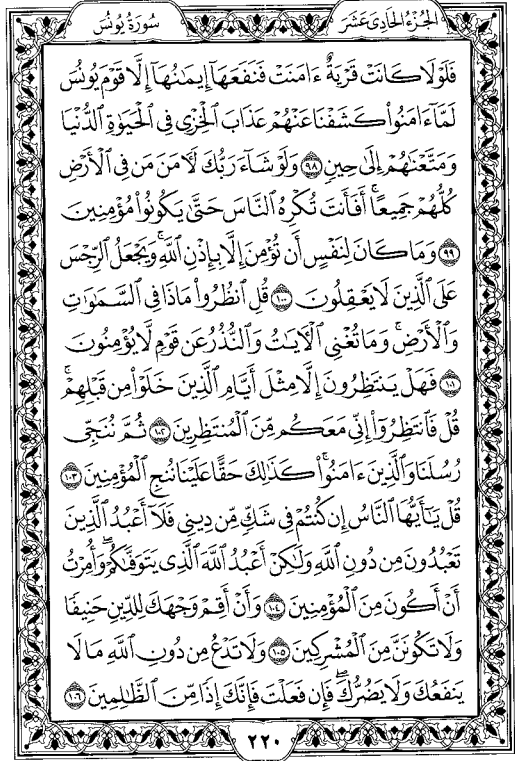 سُورَةُ يُونُسَ
الجُزْءُ الحَادِي عَشَرَ
فَلَوْلَا كَانَتْ قَرْيَةٌ ءَامَنَتْ فَنَفَعَهَآ إِيمَٰنُهَآ إِلَّا قَوْمَ يُونُسَ
لَمَّآ ءَامَنُوا۟ كَشَفْنَا عَنْهُمْ عَذَابَ ٱلْخِزْىِ فِى ٱلْحَيَوٰةِ ٱلدُّنْيَا
وَمَتَّعْنَٰهُمْ إِلَىٰ حِينٍ ٩٨ وَلَوْ شَآءَ رَبُّكَ لَـَٔامَنَ مَن فِى ٱلْأَرْضِ
كُلُّهُمْ جَمِيعًا ۚ أَفَأَنتَ تُكْرِهُ ٱلنَّاسَ حَتَّىٰ يَكُونُوا۟ مُؤْمِنِينَ
٩٩ وَمَا كَانَ لِنَفْسٍ أَن تُؤْمِنَ إِلَّا بِإِذْنِ ٱللَّهِ ۚ وَيَجْعَلُ ٱلرِّجْسَ
عَلَى ٱلَّذِينَ لَا يَعْقِلُونَ ١٠٠ قُلِ ٱنظُرُوا۟ مَاذَا فِى ٱلسَّمَٰوَٰتِ
وَٱلْأَرْضِ ۚ وَمَا تُغْنِى ٱلْـَٔايَٰتُ وَٱلنُّذُرُ عَن قَوْمٍ لَّا يُؤْمِنُونَ
١٠١ فَهَلْ يَنتَظِرُونَ إِلَّا مِثْلَ أَيَّامِ ٱلَّذِينَ خَلَوْا۟ مِن قَبْلِهِمْ ۚ
قُلْ فَٱنتَظِرُوٓا۟ إِنِّى مَعَكُم مِّنَ ٱلْمُنتَظِرِينَ ١٠٢ ثُمَّ نُنَجِّى
رُسُلَنَا وَٱلَّذِينَ ءَامَنُوا۟ ۚ كَذَٰلِكَ حَقًّا عَلَيْنَا نُنجِ ٱلْمُؤْمِنِينَ ١٠٣
قُلْ يَٰٓأَيُّهَا ٱلنَّاسُ إِن كُنتُمْ فِى شَكٍّ مِّن دِينِى فَلَآ أَعْبُدُ ٱلَّذِينَ
تَعْبُدُونَ مِن دُونِ ٱللَّهِ وَلَٰكِنْ أَعْبُدُ ٱللَّهَ ٱلَّذِى يَتَوَفَّىٰكُمْ ۖ وَأُمِرْتُ
أَنْ أَكُونَ مِنَ ٱلْمُؤْمِنِينَ ١٠٤ وَأَنْ أَقِمْ وَجْهَكَ لِلدِّينِ حَنِيفًا
وَلَا تَكُونَنَّ مِنَ ٱلْمُشْرِكِينَ ١٠٥ وَلَا تَدْعُ مِن دُونِ ٱللَّهِ مَا لَا
يَنفَعُكَ وَلَا يَضُرُّكَ ۖ فَإِن فَعَلْتَ فَإِنَّكَ إِذًا مِّنَ ٱلظَّٰلِمِينَ ١٠٦
٢٢٠